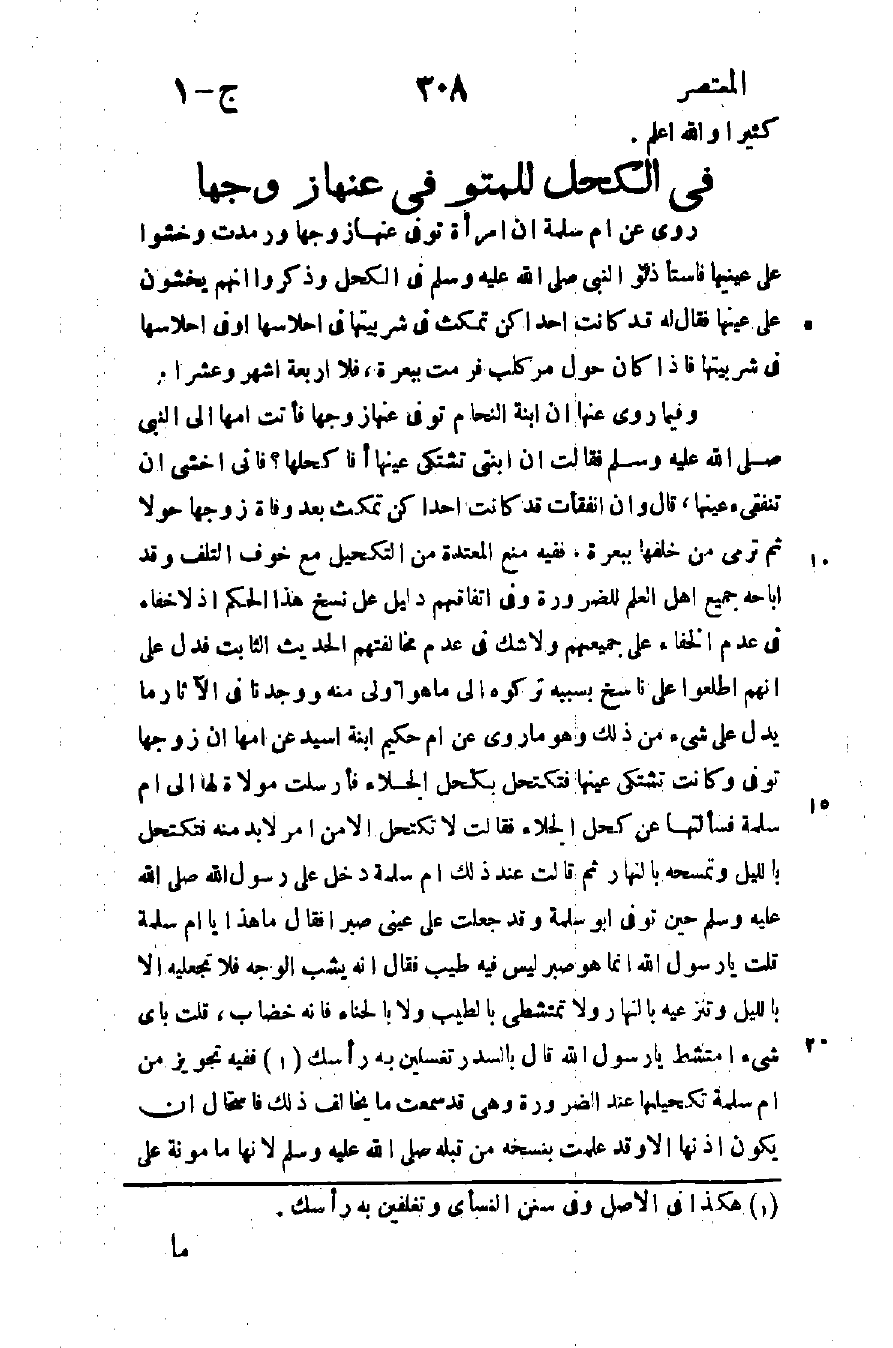 المعتصر ٣٠٨ ج-١
كثيرا والله اعلم .
فى الكحل للمتوفى عنها زوجها
روى عن ام سلمة ان امرأة توفى عنها زوجها ورمدت وخشوا
على عينيها فاستأذنوا النبى صلى الله عليه وسلم فى الكحل وذكروا انهم يخشون
على عينها فقال له قد كانت احداكن تمكث فى شر بيتها فى احلاسها اوفى احلاسها ٥
فى شر بيتها فاذا كان حول مر كلب فرمت ببعرة ، فلا اربعة اشهر وعشرا .
وفيما روى عنها ان ابنة النحام توفى عنها زوجها فأتت امها الى النبى
صلى الله عليه وسلم فقالت ان ابنتى تشتكى عينها أفا كحلها؟ فانى اخشى ان
تنفقىء عينها ، قال وان انفقأت قد كانت احداكن تمكث بعد وفاة زوجها حولا
ثم ترمى من خلفها ببعرة ، ففيه منع المعتدة من التكحيل مع خوف التلف وقد ١٠
اباحه جميع اهل العلم للضرورة وفى اتفاقهم دليل على نسخ هذا الحكم اذ لاخفاء
فى عدم الخفاء على جميعهم ولاشك فى عدم مخالفتهم الحديث الثابت فدل على
انهم اطلعوا على ناسخ بسببه تركوه الى ماهو اولى منه ووجدنا فى الآثار ما
يدل على شىء من ذلك وهو ماروى عن ام حكيم ابنة اسيد عن امها ان زوجها
توفى وكانت تشتكى عينها فتكتحل بكحل الجلاء فأرسلت مولاة لها الى ام
سلمة فسألتها عن كحل الجلاء فقالت لا تكتحل الامن امر لابد منه فتكتحل ١٥
بالليل وتمسحه بالنهار ثم قالت عند ذلك ام سلمة دخل على رسول الله صلى الله
عليه وسلم حين توفى ابو سلمة وقد جعلت على عينى صبرا فقال ماهذا يا ام سلمة
قلت يارسول الله انما هو صبر ليس فيه طيب فقال انه يشب الوجه فلا تجعليه الا
بالليل وتنزعيه بالنهار ولا تمتشطى بالطيب ولا بالحناء فانه خضاب ، قلت باى
شىء امتشط يارسول الله قال بالسدر تغسلين به رأسك (١) ففيه تجويز من ٢٠
ام سلمة تكحيلها عند الضرورة وهى قد سمعت ما يخالف ذلك فاستحال ان
يكون اذنها الا وقد علمت بنسخه من قبله صلى الله عليه وسلم لانها مامونة على
(١) هكذا فى الاصل وفى سنن النسأى وتغلفين به رأسك .
ما